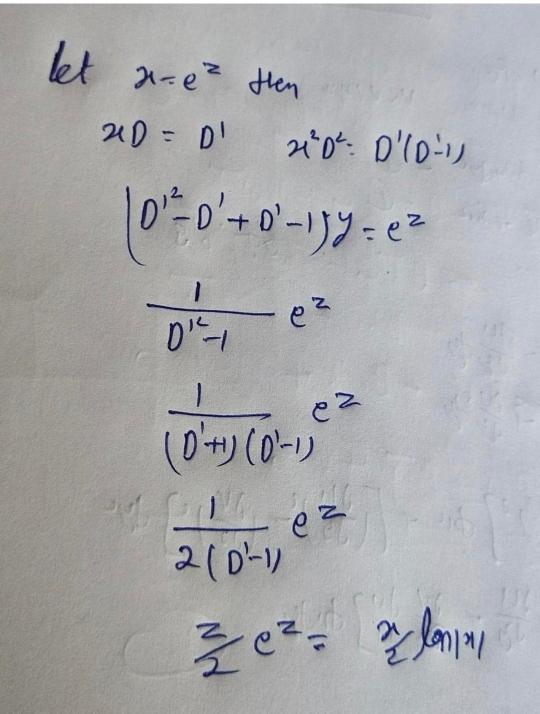 let x = e^z then
xD = D' x²D² = D'(D'-1)
(D'² - D' + D' - 1) y = e^z
1
D'² - 1 e^z
1
(D'+1)(D'-1) e^z
1
2(D'-1) e^z
z/2 e^z = x/2 log|x|